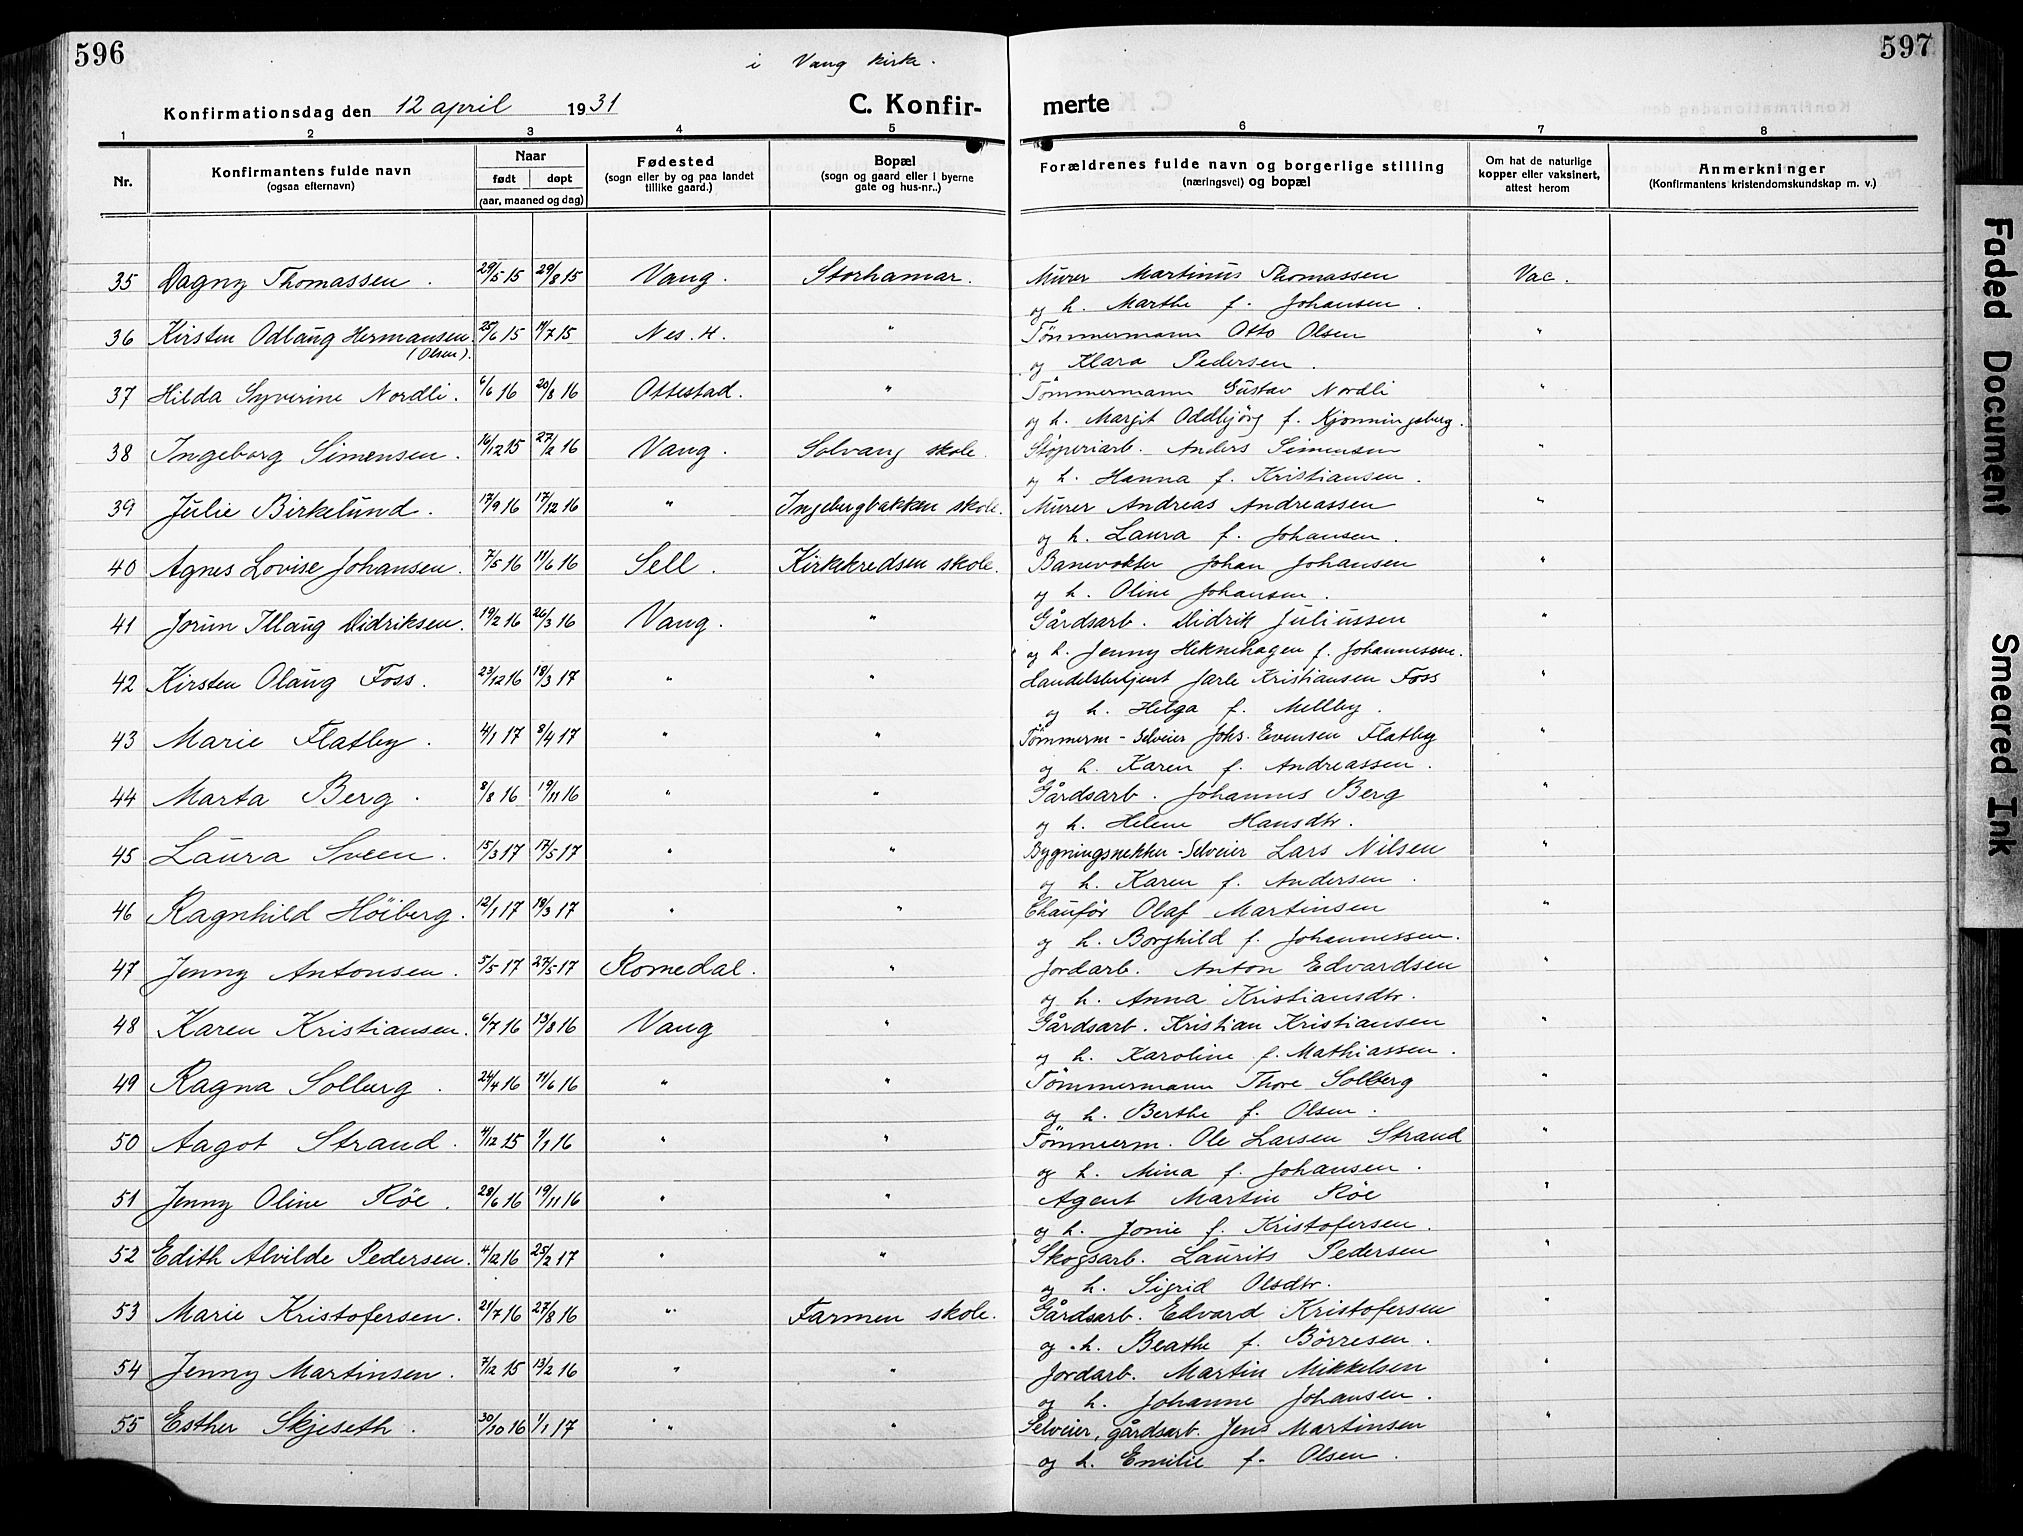 596
597
i Vang kirke.
Konfirmationsdag den 12 april 1931
C. Konfir-
merte
1 2 3 4 5 6 7 8
Nr.
Konfirmantens fulde navn
(ogsaa efternavn)
Naar
født døpt
(aar, maaned og dag)
Fødested
(sogn eller by og paa landet
tillike gaard.)
Bopæl
(sogn og gaard eller i byerne
gate og hus-nr..)
Forældrenes fulde navn og borgerlige stilling
(næringsvei) og bopæl
Om hat de naturlige
kopper eller vaksinert,
attest herom
Anmerkninger
(Konfirmantens kristendomskundskap m. v.)
35 Dagny Thomassen. 29/5 15 29/8 15 Vang. Storhamar. Murer Martinus Thomassen Vac.
og h. Marthe f. Johansen.
36 Kirsten Odlaug Hermansen 25/6 15 /7 15 Nes. H. " Tømmermann Otto Olsen "
(Olsen).
og Klara Pedersen.
37 Hilda Syverine Nordli. 6/6 16 20/8 16 Ottestad. " Tømmermann Gustav Nordli "
og h. Margit Oddbjørg f. Kjonningsberg.
38 Ingeborg Simensen. 16/12 15 27/2 16 Vang. Solvang skole. Støperiarb. Anders Simensen "
og h. Hanna f. Kristiansen.
39 Julie Birkelund. 17/9 16 17/12 16 " Ingebergbakken skole. Murer Andreas Andreassen "
og h. Laura f. Johansen.
40 Agnes Lovise Johansen. 7/5 16 11/6 16 Sell. Kirkekredsen skole. Banevokter Johan Johansen "
og h. Oline Johansen.
41 Jorun Illaug Didriksen. 19/2 16 26/3 16 Vang. " Gårdsarb. Didrik Juliussen "
og h. Jenny Heknehagen f. Johannessen.
42 Kirsten Olaug Foss. 23/12 16 18/3 17 " " Handelsbetjent Jarle Kristiansen Foss "
og h. Helga f. Mellby.
43 Marie Flatby. 4/1 17 8/4 17 " " Tømmerm - Selveier Johs. Evensen Flatby "
og h. Karen f. Andreassen.
44 Marta Berg. 8/8 16 19/11 16 " " Gårdsarb. Johannes Berg "
og h. Helene Hansdtr.
45 Laura Sveen. 15/3 17 17/5 17 " " Bygningsnekker - Selveier Lars Nilsen "
og h. Karen f. Andersen.
46 Ragnhild Höiberg. 12/1 17 18/3 17 " " Chauför Olaf Martinsen "
og h. Borghild f. Johannessen.
47 Jenny Antonsen. 5/5 17 27/5 17 Romedal. " Jordarb. Anton Edvardsen "
og h. Anna Kristiansdtr.
48 Karen Kristiansen. 6/7 16 13/8 16 Vang " Gårdsarb. Kristian Kristiansen "
og h. Karoline f. Mathiassen.
49 Ragna Solberg. 24/4 16 11/6 16 " " Tömmermann Thore Solberg "
og h. Berthe f. Olsen.
50 Aagot Strand. 4/12 15 1/1 16 " " Tömmerm. Ole Larsen Strand "
og h. Mina f. Johansen.
51 Jenny Oline Röe. 28/6 16 19/11 16 " " Agent Martin Röe "
og h. Jonie f. Kristofersen.
52 Edith Alvilde Pedersen. 4/12 16 25/2 17 " " Skogsarb. Laurits Pedersen "
og h. Sigrid Olsdtr.
53 Marie Kristofersen. 21/7 16 27/8 16 " Farmen skole. Gårdsarb. Edvard Kristofersen "
og h. Beathe f. Börresen.
54 Jenny Martinsen. 7/12 15 13/2 16 " " Jordarb. Martin Mikkelsen "
og h. Johanne Johansen.
55 Esther Skjeseth. 30/10 16 1/1 17 " " Selveier, gårdsarb. Jens Martinsen "
og h. Emilie f. Olsen.
Faded Document
Smeared Ink